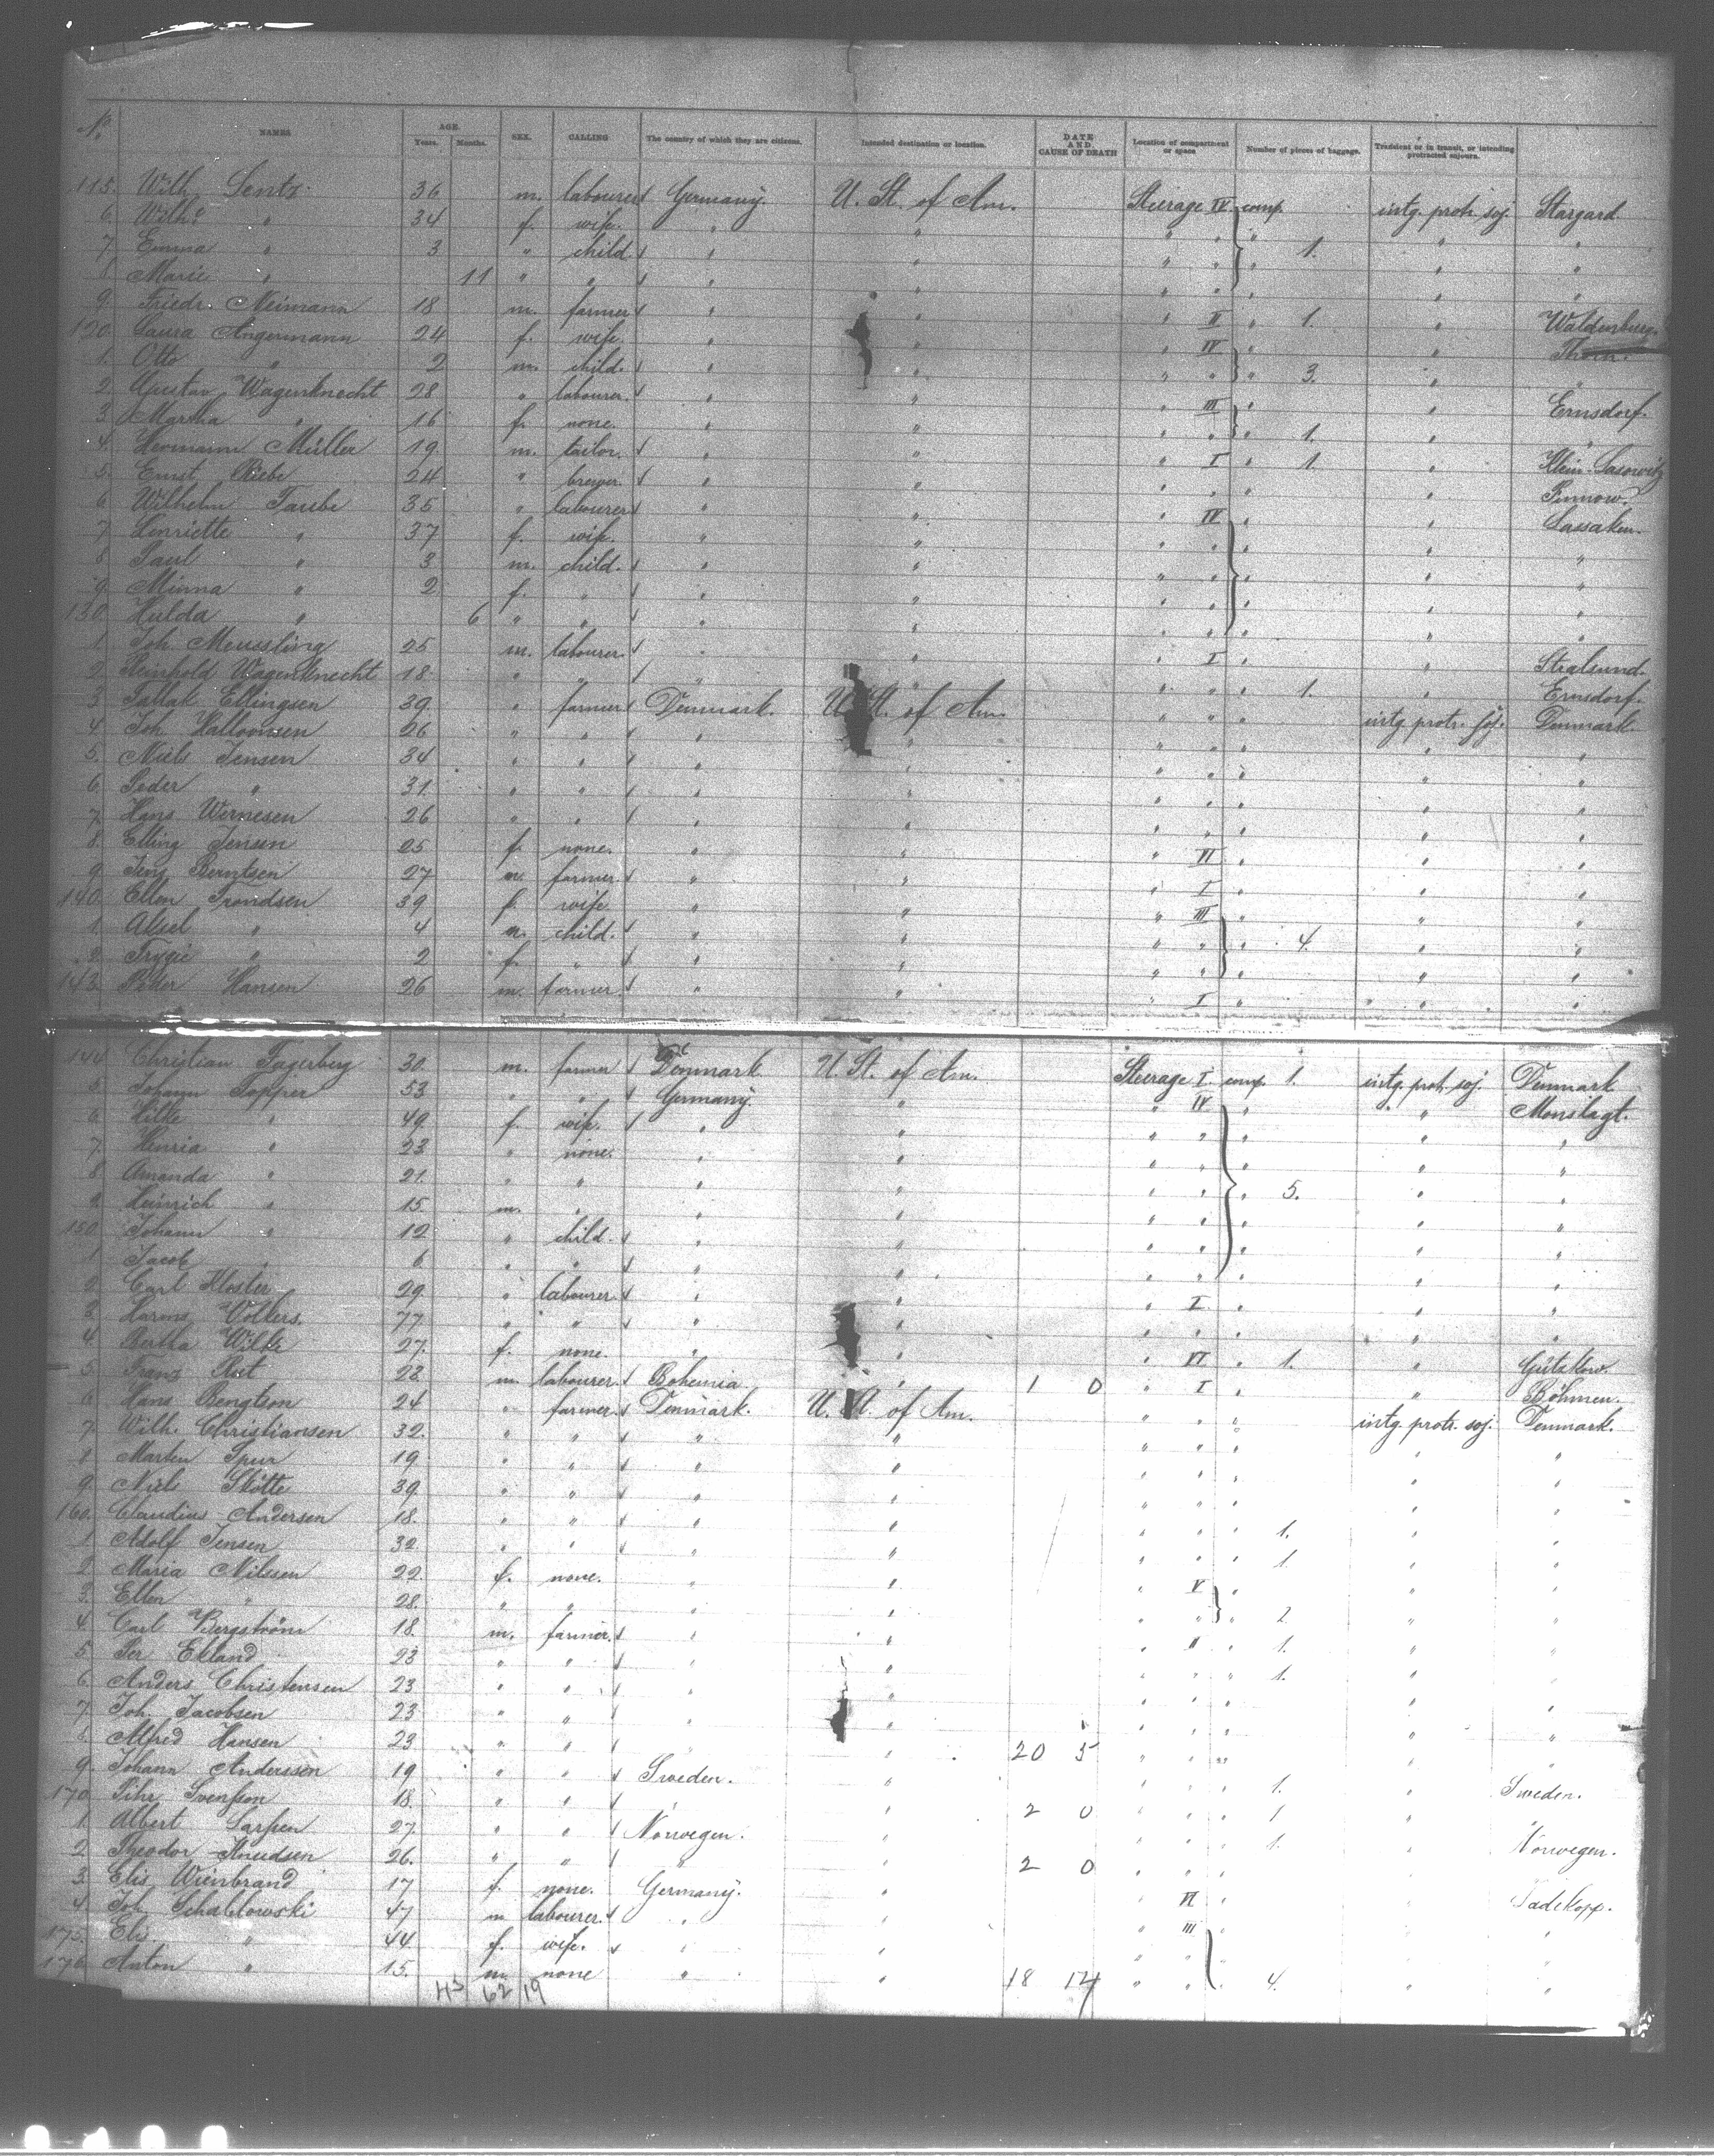 No. NAMES AGE. Years. Months. SEX. CALLING The country of which they are citizens. Intended destination or location. DATE AND CAUSE OF DEATH Location of compartment or space Number of pieces of baggage. Transient or in transit, or intending protracted sojourn.
115. Wilh. Lentz 36 m. labourer Germany. U. St. of Am. Steerage IV comp. intg. protr. soj. Stargard
6. Wilh.e " 34 f. wife. " " " " " " "
7. Emma " 3 " child. " " " " " 1. " "
8. Marie " 11 " " " " " " " " "
9. Friedr. Neimann 18 m. farmer " " " II " 1. " Waldenburg.
120. Laura Angermann 24 f. wife. " " " IV " " Thorn.
1. Otto " 2 m. child. " " " " " 3. " "
2. Gustav Wagenknecht 28 " labourer. " " " III " " Ernsdorf.
3. Martha " 16 f. none. " " " " " 1. " "
4. Hermann Müller 19 m. tailor. " " " I " 1. " Klein-Lasowitz
5. Ernst Riebe 24 " brewer. " " " " " " Pinnow.
6. Wilhelm Taube 35 " labourer " " " IV " " Lassaken.
7. Henriette " 37 f. wife. " " " " " " "
8. Paul " 3 m. child. " " " " " " "
9. Minna " 2 f. " " " " " " " "
130. Hulda " 6 " " " " " " " " "
1. Joh. Meussling 25 m. labourer. " " " I " " Stralsund.
2. Reinhold Wagenknecht 18 " " " " " " " 1. " Ernsdorf.
3. Ellingsen 39. " farmer Denmark. U. St. of Am. " " " intg. protr. soj. Denmark
4. Joh. 26 " " " " " " " " "
5. Niels Jensen 34 " " " " " " " " "
6. Peder " 31. " " " " " " " " "
7. Hans Wernesen 26 " " " " " " " " "
8. Elling Jensen 25 f. none. " " " VI " " "
9. Jens Berntsen 27 m. farmer. " " " I " " "
140. Ellen Trondsen 39 f. wife. " " " III " " "
1. Aksel " 4 m. child. " " " " " 4. " "
2. " 2 f. " " " " " " " "
143. Peter Hansen 26 m. farmer. " " " I " " "
144 Christian Fagerberg 30. m. farmer Denmark U. St. of Am. Steerage I. comp. 1. intg. protr. soj. Denmark
5. Johann Topper 53 " " Germany. " " IV " " Monslagt.
6. Hilke " 49. f. wife. " " " " " " "
7. Henria " 23 " none. " " " " " " "
8. Amanda " 21. " " " " " " " 5. " "
9. Heinrich " 15. m. " " " " " " " "
150. Johann " 12 " child. " " " " " " "
1. Jacob " 6 " " " " " " " " "
2. Carl Kloster 29. " labourer. " " " I " " "
3. Harms Wolters. 77. " " " " " " " " "
4. Bertha Wilke 27. f. none. " " " VI " 1. " Gützkow.
5. Franz Rut 28. m. labourer. Bohemia " 1 0 " I " " Böhmen.
6. Hans Bengtson 24 " farmer. Denmark. U. St. of Am. " " " intg. protr. soj. Denmark.
7. Wilh. Christiansen 32. " " " " " " " " "
8. Marten Spur 19 " " " " " " " " "
9. Niels Skötte 39. " " " " " " " " "
160. Claudius Andersen 18. " " " " " " " 1. " "
1. Adolf Jensen 32. " " " " " " " 1. " "
2. Maria Nilssen 22. f. none. " " " V " " "
3. Ellen " 28. " " " " " " " 2. " "
4. Carl Bergström 18. m. farmer. " " " II " 1. " "
5. Per Ekland 23 " " " " " " " 1. " "
6. Anders Christensen 23 " " " " " " " " "
7. Joh. Jacobsen 23 " " " " " " " " "
8. Alfred Hansen 23 " " " " 20 5 " " " " "
9. Johann Andersson 19 " " Sweden. " " " " 1. " Sweden.
170. Svensson 18. " " " " 2 0 " " " 1 " "
1. Albert Larssen 27. " " Norwegen. " " " " 1. " Norwegen.
2. Theodor Knudsen 26. " " " " 2 0 " " " " "
3. Elis. Wienbrand 17 f. none. Germany. " " VI " " Ladekopp.
4. Joh. Schablowski 47 m. labourer. " " " III " " "
175. Elis. " 44. f. wife. " " " " " " "
176. Anton " 15. m. none " " 18 14 " " " 4. " "
43 62 19